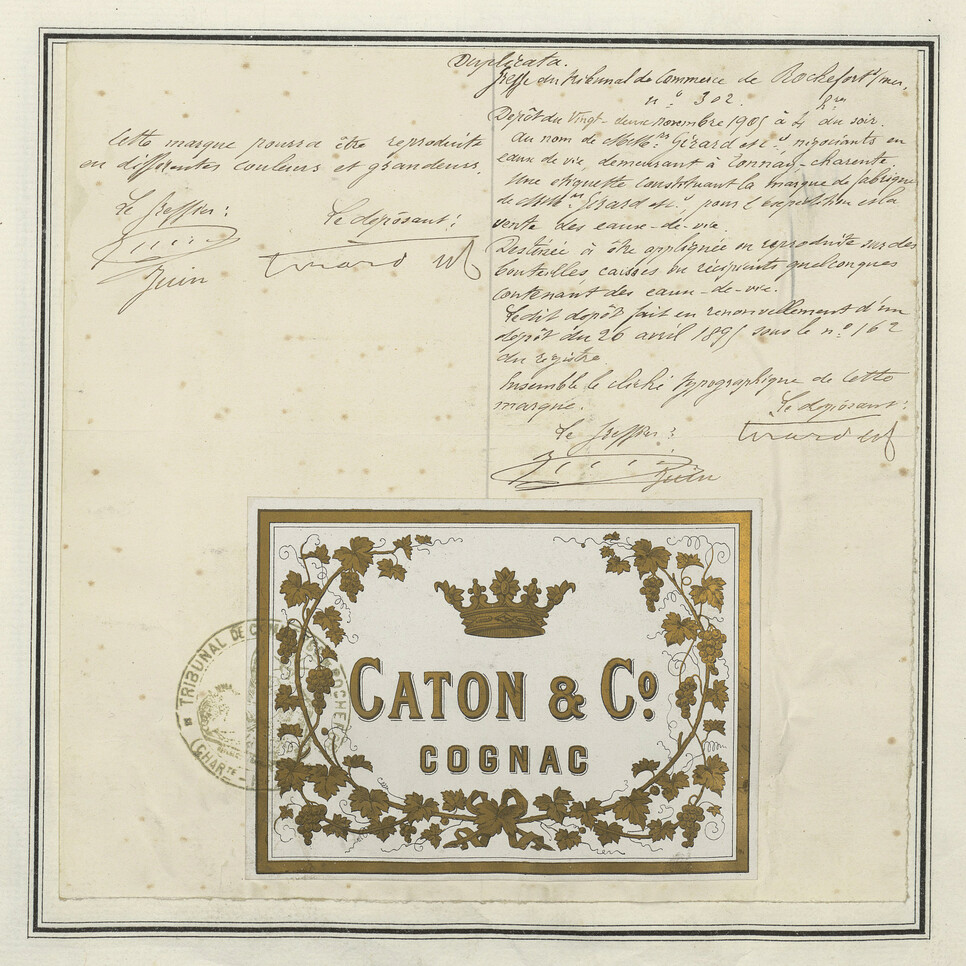 Duplicata.
Greffe du tribunal de Commerce de Rochefort s/mer,
n° 302.
Dépôt du Vingt-deux novembre 1905 à 4 hres du soir.
au nom de MM. Girard et Cie, négociants en
eaux de vie demeurant à tonnay-charente
Une étiquette constituant la marque de fabrique
de MM. Girard et Cie pour l'expédition et la
vente des eaux-de-vie.
Destinée à être appliquée ou reproduite sur des
bouteilles caisses ou récipients quelconques
contenant des eaux-de-vie.
Ledit dépôt fait en renouvellement d'un
dépôt du 26 avril 1895 sous le n° 162
du registre.
Ensemble le cliché typographique de cette
marque.
Le déposant:
Le Greffier:
Cette marque pourra être reproduite
en différentes couleurs et grandeurs.
Le Greffier:
Le déposant:
CATON & Co.
COGNAC
TRIBUNAL DE